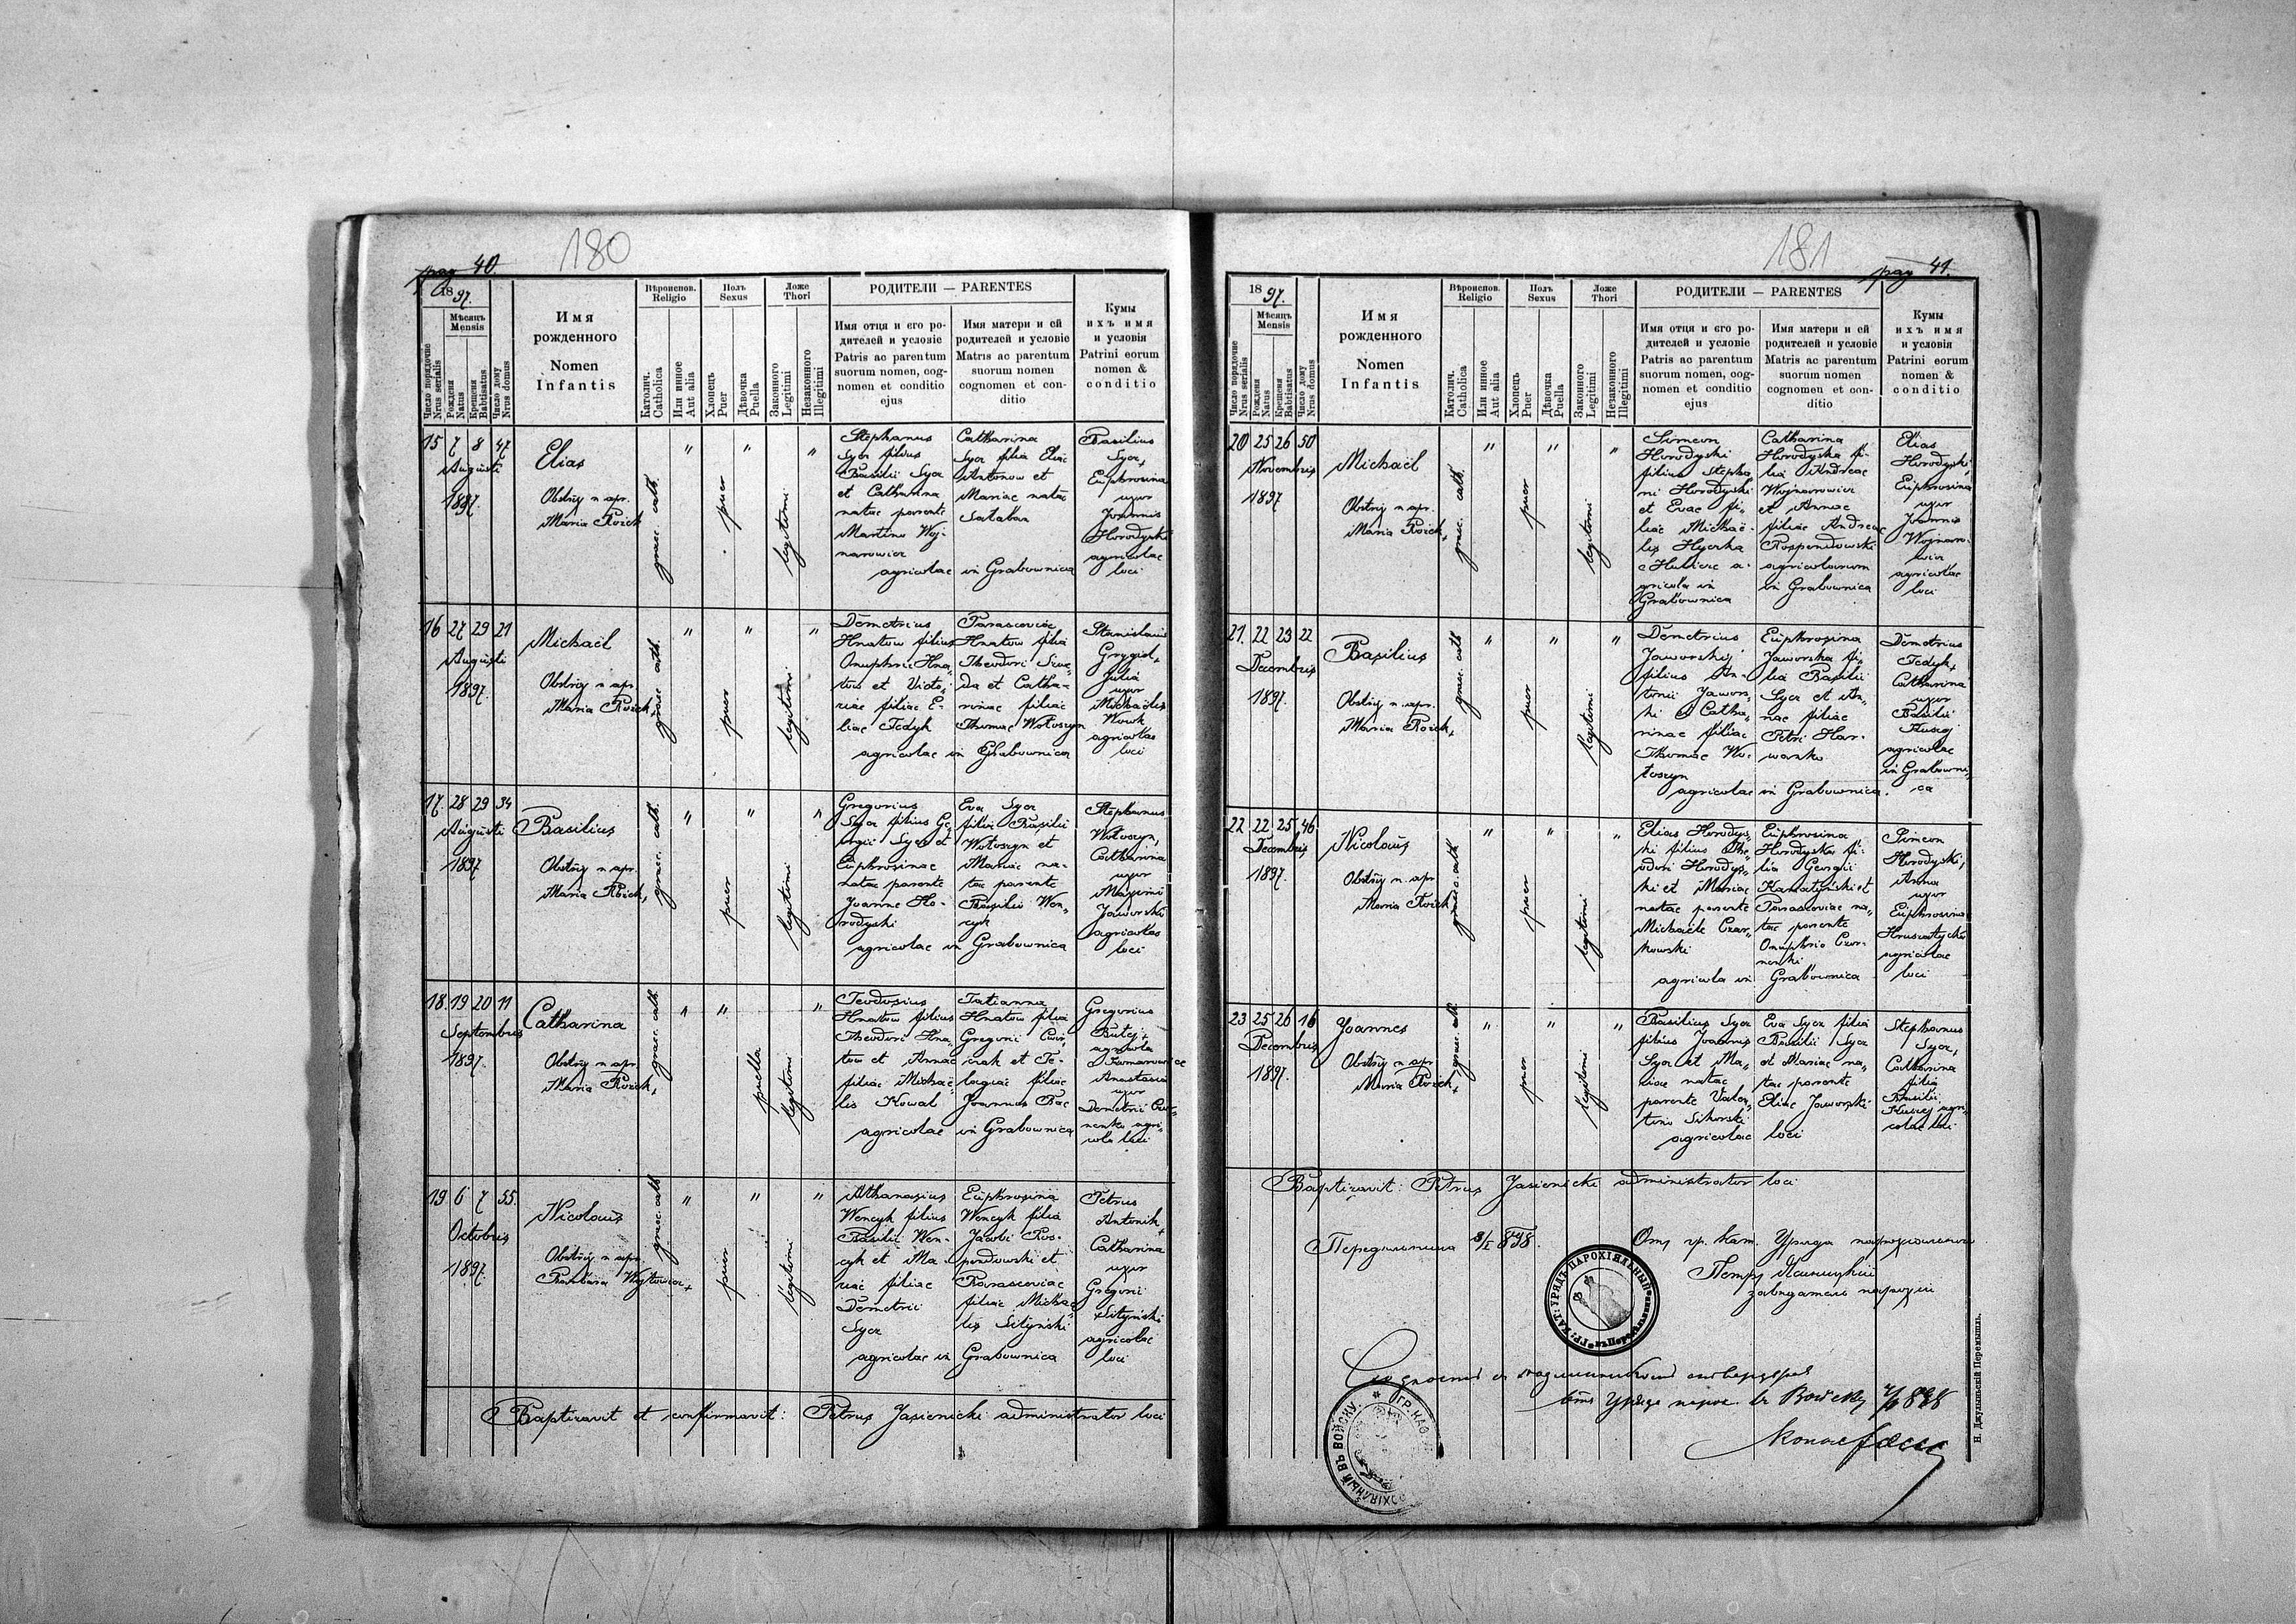 180
pag 40.
18 97.
Мѣсяцъ
Mensis
Число порядочне
Nrus serialis
Рожденя
Natus
Крещеня
Babtisatus
Число дому
Nrus domus
Имя
рожденного
Nomen
Infantis
Вѣроиспов.
Religio
Католич.
Catholica
Или инное
Aut alia
Полъ
Sexus
Хлопець
Puer
Дѣвочка
Puella
Ложе
Thori
Законного
Legitimi
Незаконного
Illegitimi
РОДИТЕЛИ — PARENTES
Имя отця и его ро-
дителей и условіе
Patris ac parentum
suorum nomen, cog-
nomen et conditio
ejus
Имя матери и ей
родителей и условіе
Matris ac parentum
suorum nomen
cognomen et con-
ditio
Кумы
ихъ имя
и условія
Patrini eorum
nomen &
conditio
15 7 8 47
Augusti
1897.
Elias
Obstriy n apr.
Maria Rożek
graec. cath.
"
puer
"
legitimi
"
Stephanus
Sycz filius
Basilii Sycz
et Catharina
natae parente
Martino Woj-
narowicz
Catharina
Sycz filia Eliae
Antonow et
Mariae natae
Sataban
agricolae in Grabownica
Basilius
Sycz,
Euphrosina
uxor
Joannis
Horodyski
agricolae
loci
16 27 29 21
Augusti
1897.
Michaël
Obstriy n apr.
Maria Rożek,
graec. cath.
"
puer
"
legitimi
"
Demetrius
Hnatow filius
Onuphrii Hna-
tow et Victo-
riae filiae E-
liae Fedyk
Parascevia
Hnatow filia
Theodori
da et Catha-
rinae filiae
Thomae Wołoszyn
agricolae in Grabownica
Stanislaus
Julia
uxor
Michaëlis
Wowk
agricolae
loci
17. 28 29 34
Augusti
1897
Basilius
Obstriy n apr.
Maria Rożek,
graec. cath.
"
puer
"
legitimi
"
Gregorius
Sycz filius Ge-
orgii Sycz et
Euphrosinae
natae parente
Joanne Ho-
rodyski
Eva Sycz
filia Basilii
Wołoszyn et
Mariae na-
tae parente
Basilio Wen-
cyk
agricolae in Grabownica
Stephanus
Wołoszyn,
Catharina
uxor
Maximi
Jaworski
agricolae
loci
18. 19 20 11
Septembris
1897.
Catharina
Obstriy n apr.
Maria Rożek,
graec. cath.
"
"
puella
legitimi
"
Teodosius
Hnatow filius
Theodori Hna-
tow et Annae
filiae Michaë-
lis Kowal
Tatianna
Hnatow filia
Gregorii
et Te-
lagiae filiae
Joannis Bac
agricolae in Grabownica
Gregorius
Butej,
agricola
Anastasia
uxor
Demetrii
agri-
cola loci
19 6 7 55.
Octobris
1897.
Nicolaus
Obstriy n apr.
Barbara Wojtowicz,
graec. cath.
"
puer
"
legitimi
"
Athanasius
Wencyk filius
Basilii Wen-
cyk et Ma-
riae filiae
Demetrii
Sycz
Euphrosina
Wencyk filia
Jacobi Ros-
pondowski et
Parasceviae
filiae Michaë-
lis Lityński
agricolae in Grabownica
Petrus
Antonik,
Catharina
uxor
Gregorii
Lityński
agricolae
loci
Baptizavit et confirmavit: Petrus Jasienicki administrator loci
181
pag 41.
18 97.
Мѣсяцъ
Mensis
Число порядочне
Nrus serialis
Рожденя
Natus
Крещеня
Babtisatus
Число дому
Nrus domus
Имя
рожденного
Nomen
Infantis
Вѣроиспов.
Religio
Католич.
Catholica
Или инное
Aut alia
Полъ
Sexus
Хлопець
Puer
Дѣвочка
Puella
Ложе
Thori
Законного
Legitimi
Незаконного
Illegitimi
РОДИТЕЛИ — PARENTES
Имя отця и его ро-
дителей и условіе
Patris ac parentum
suorum nomen, cog-
nomen et conditio
ejus
Имя матери и ей
родителей и условіе
Matris ac parentum
suorum nomen
cognomen et con-
ditio
Кумы
ихъ имя
и условія
Patrini eorum
nomen &
conditio
20 25 26 50
Novembris
1897
Michaël
Obstriy n apr.
Maria Rożek,
graec. cath.
"
puer
"
legitimi
"
Simeon
Horodyski
filius Stepha-
ni Horodyski
et Evae fi-
liae Michaë-
lis Hycrka
a-
gricola in
Grabownica
Catharina
Horodyska fi-
lia Andreae
Wojnarowicz
et Annae
filiae Andreae
Rospondowski
agricolarum
in Grabownica
Elias
Horodyski,
Euphrosina
uxor
Joannis
Wojnaro-
wicz
agricolae
loci
21. 22 23 22
Decembris
1897.
Basilius
Obstriy n apr.
Maria Rożek,
graec. cath
"
puer
"
legitimi
"
Demetrius
Jaworskij
filius An-
tonii Jawor-
ski et Catha-
rinae filiae
Thomae Wo-
łoszyn
Euphrosina
Jaworska fi-
lia Basilii
Sycz et An-
nae filiae
Petri Har-
wanko
agricolae in Grabownica.
Demetrius
Fedyk,
Catharina
uxor
Basilii
Kuszej
agricolae
in Grabowni-
ca
22 22 25 46
Decembris
1897.
Nicolaus
Obstriy n apr
Maria Rożek
graec. cath
"
puer
"
legitimi
"
Elias Horodys-
ki filius The-
odori Horodys-
ki et Mariae
natae parente
Michaële Czar-
kowski
Euphrosina
Horodyska fi-
lia Georgii
et
Parasceviae na-
tae parente
Onuphrio Czor-
nenki
agricola in Grabownica
Simeon
Horodyski,
Anna
uxor
agricolae
loci
23 25 26 16
Decembris
1897.
Joannes
Obstriy n apr
Maria Rożek,
graec. cath.
"
puer
"
legitimi
"
Basilius Sycz
filius Joannis
Sycz et Ma-
riae natae
parente Valen-
tino Sikorski
Eva Sycz filia
Basilii Sycz
et Mariae na-
tae parente
Eliae Jaworski
agricolae loci
Stephanus
Sycz,
Catharina
filia
Basilii
Kuszej agri-
colae loci
Baptizavit: Petrus Jasienicki administrator loci
8/I 898.
Отъ гр. кат. Уряда парохіяльного
Петръ Ясеницкій
завѣдатель парохіи
ГР: КАТ: УРЯДЪ ПАРОХІЯЛЬНЫЙ
отъ Уряда парох. въ Войску
ГР. КАӨ.
ВЪ ВОЙСКУ.
Н. Джулыньскій Перемышль.